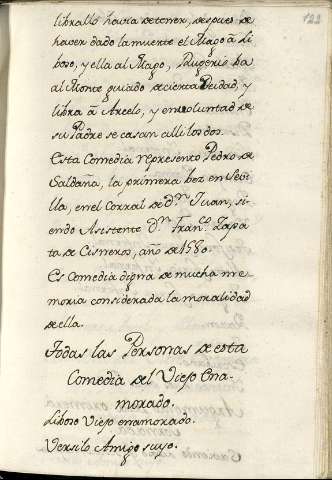 122
librallo havia de tener, despues de
hacer dado la muerte el Mago à Li
boso, y ella al Mago, Rugerio ba
al Monte guiado de cierta Deidad, y
libra à Arcelo, y en voluntad de
su Padre se casan alli los dos.
Esta Comedia represento Pedro de
Saldaña, la primera bez en Sevi
lla, en el Corral de Dn. Juan, si-
endo Asistente Dn. Franco. Zapa
ta de Cisneros, año de 1580.
Es Comedia digna de mucha me
moria considerada la moralidad
de ella.
Todas las Personas de esta
Comedia del Viejo Ena-
morado.
Liboso Viejo enamorado.
Versilo Amigo suyo.